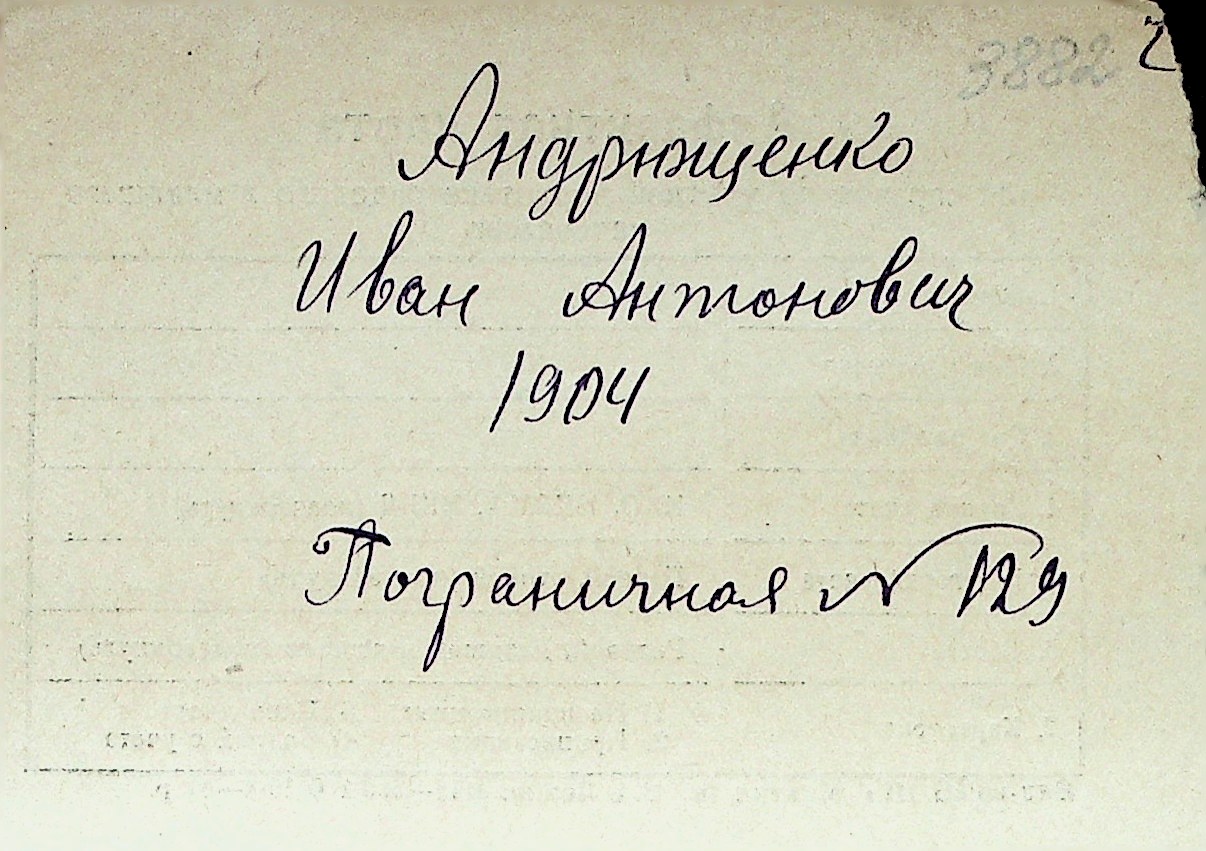 3882
Андрющенко
Иван Антонович
1904
Пограничная № 129